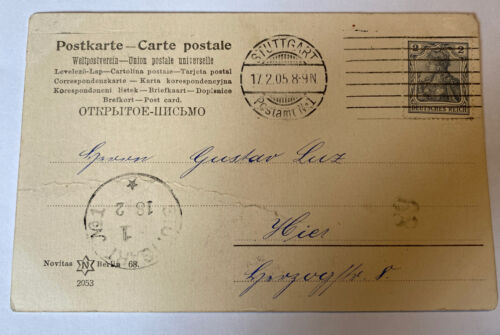 Postkarte – Carte postale
Weltpostverein – Union postale universelle
Levelező-Lap – Cartolina postale – Tarjeta postal
Correspondenzkarte – Karta korespondencyjna
Korespondenční lístek – Briefkaart – Dopisnice
Brefkort – Post card.
ОТКРЫТОЕ-ПИСЬМО
STUTTGART
17.2.05. 8-9N
Postamt No.1
2 2
DEUTSCHES REICH
Herrn Gustav Luz
Hier
Herzogstr. 8
1
18 2
No 1
Novitas N Berlin 68.
2053